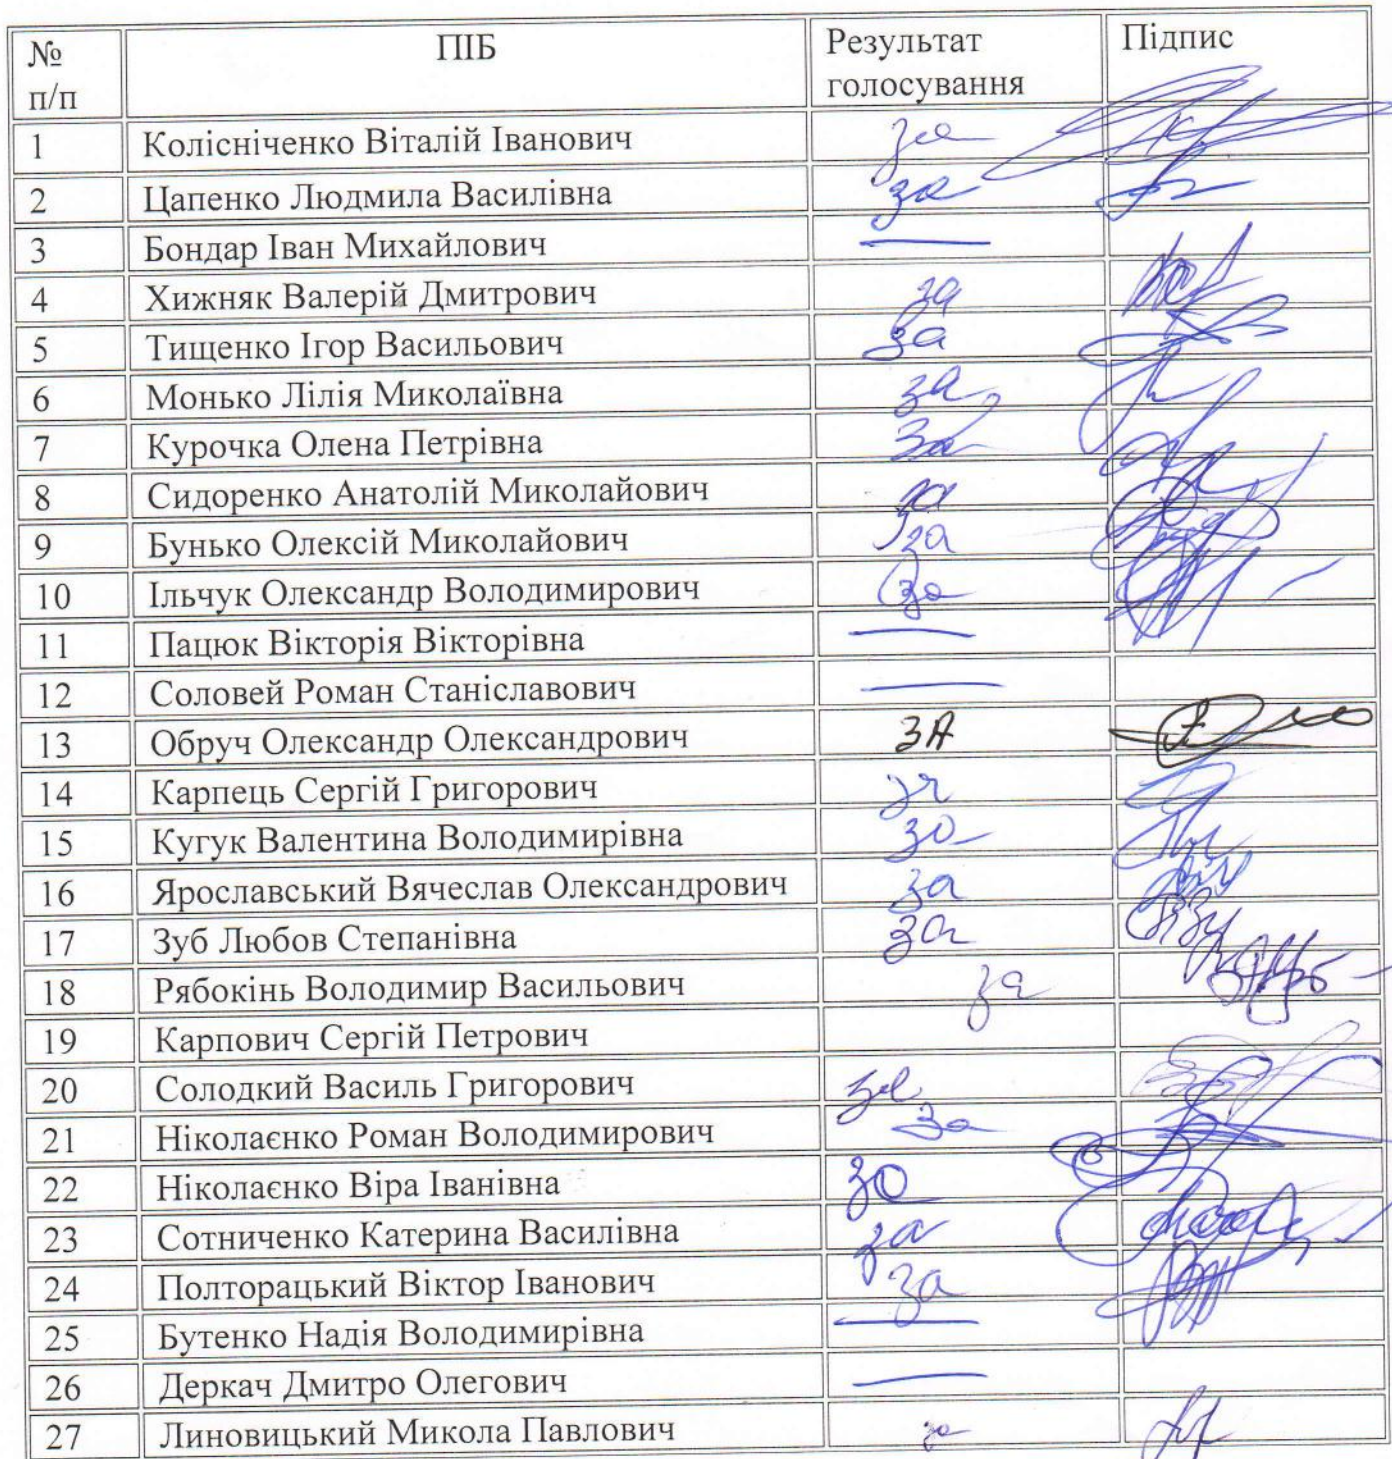 № п/п ПІБ Результат голосування Підпис
1 Колісніченко Віталій Іванович за
2 Цапенко Людмила Василівна за
3 Бондар Іван Михайлович —
4 Хижняк Валерій Дмитрович за
5 Тищенко Ігор Васильович за
6 Монько Лілія Миколаївна за
7 Курочка Олена Петрівна за
8 Сидоренко Анатолій Миколайович за
9 Бунько Олексій Миколайович за
10 Ільчук Олександр Володимирович за
11 Пацюк Вікторія Вікторівна —
12 Соловей Роман Станіславович —
13 Обруч Олександр Олександрович ЗА
14 Карпець Сергій Григорович за
15 Кугук Валентина Володимирівна за
16 Ярославський Вячеслав Олександрович за
17 Зуб Любов Степанівна за
18 Рябокінь Володимир Васильович за
19 Карпович Сергій Петрович
20 Солодкий Василь Григорович за
21 Ніколаєнко Роман Володимирович за
22 Ніколаєнко Віра Іванівна за
23 Сотниченко Катерина Василівна за
24 Полторацький Віктор Іванович за
25 Бутенко Надія Володимирівна —
26 Деркач Дмитро Олегович —
27 Линовицький Микола Павлович за